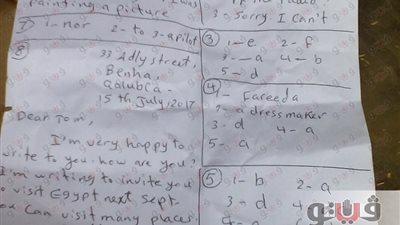 painting a picture
7 1- nor 2- to 3- a pilot
8
33 Adly street,
Benha,
Qalubia
15th July, 2017
Dear Tomi,
I'm very happy to
write to you. how are you?
I'm writing to invite you
to visit Egypt next Sept.
You can visit many places.
3- Sorry I can't
3 1- e 2- f
3- a 4- b
5- d
4 1- Fareeda
2- a dressmaker
3- d 4- a
5- a
5 1- b 2- a
3- d 4-
فيتو